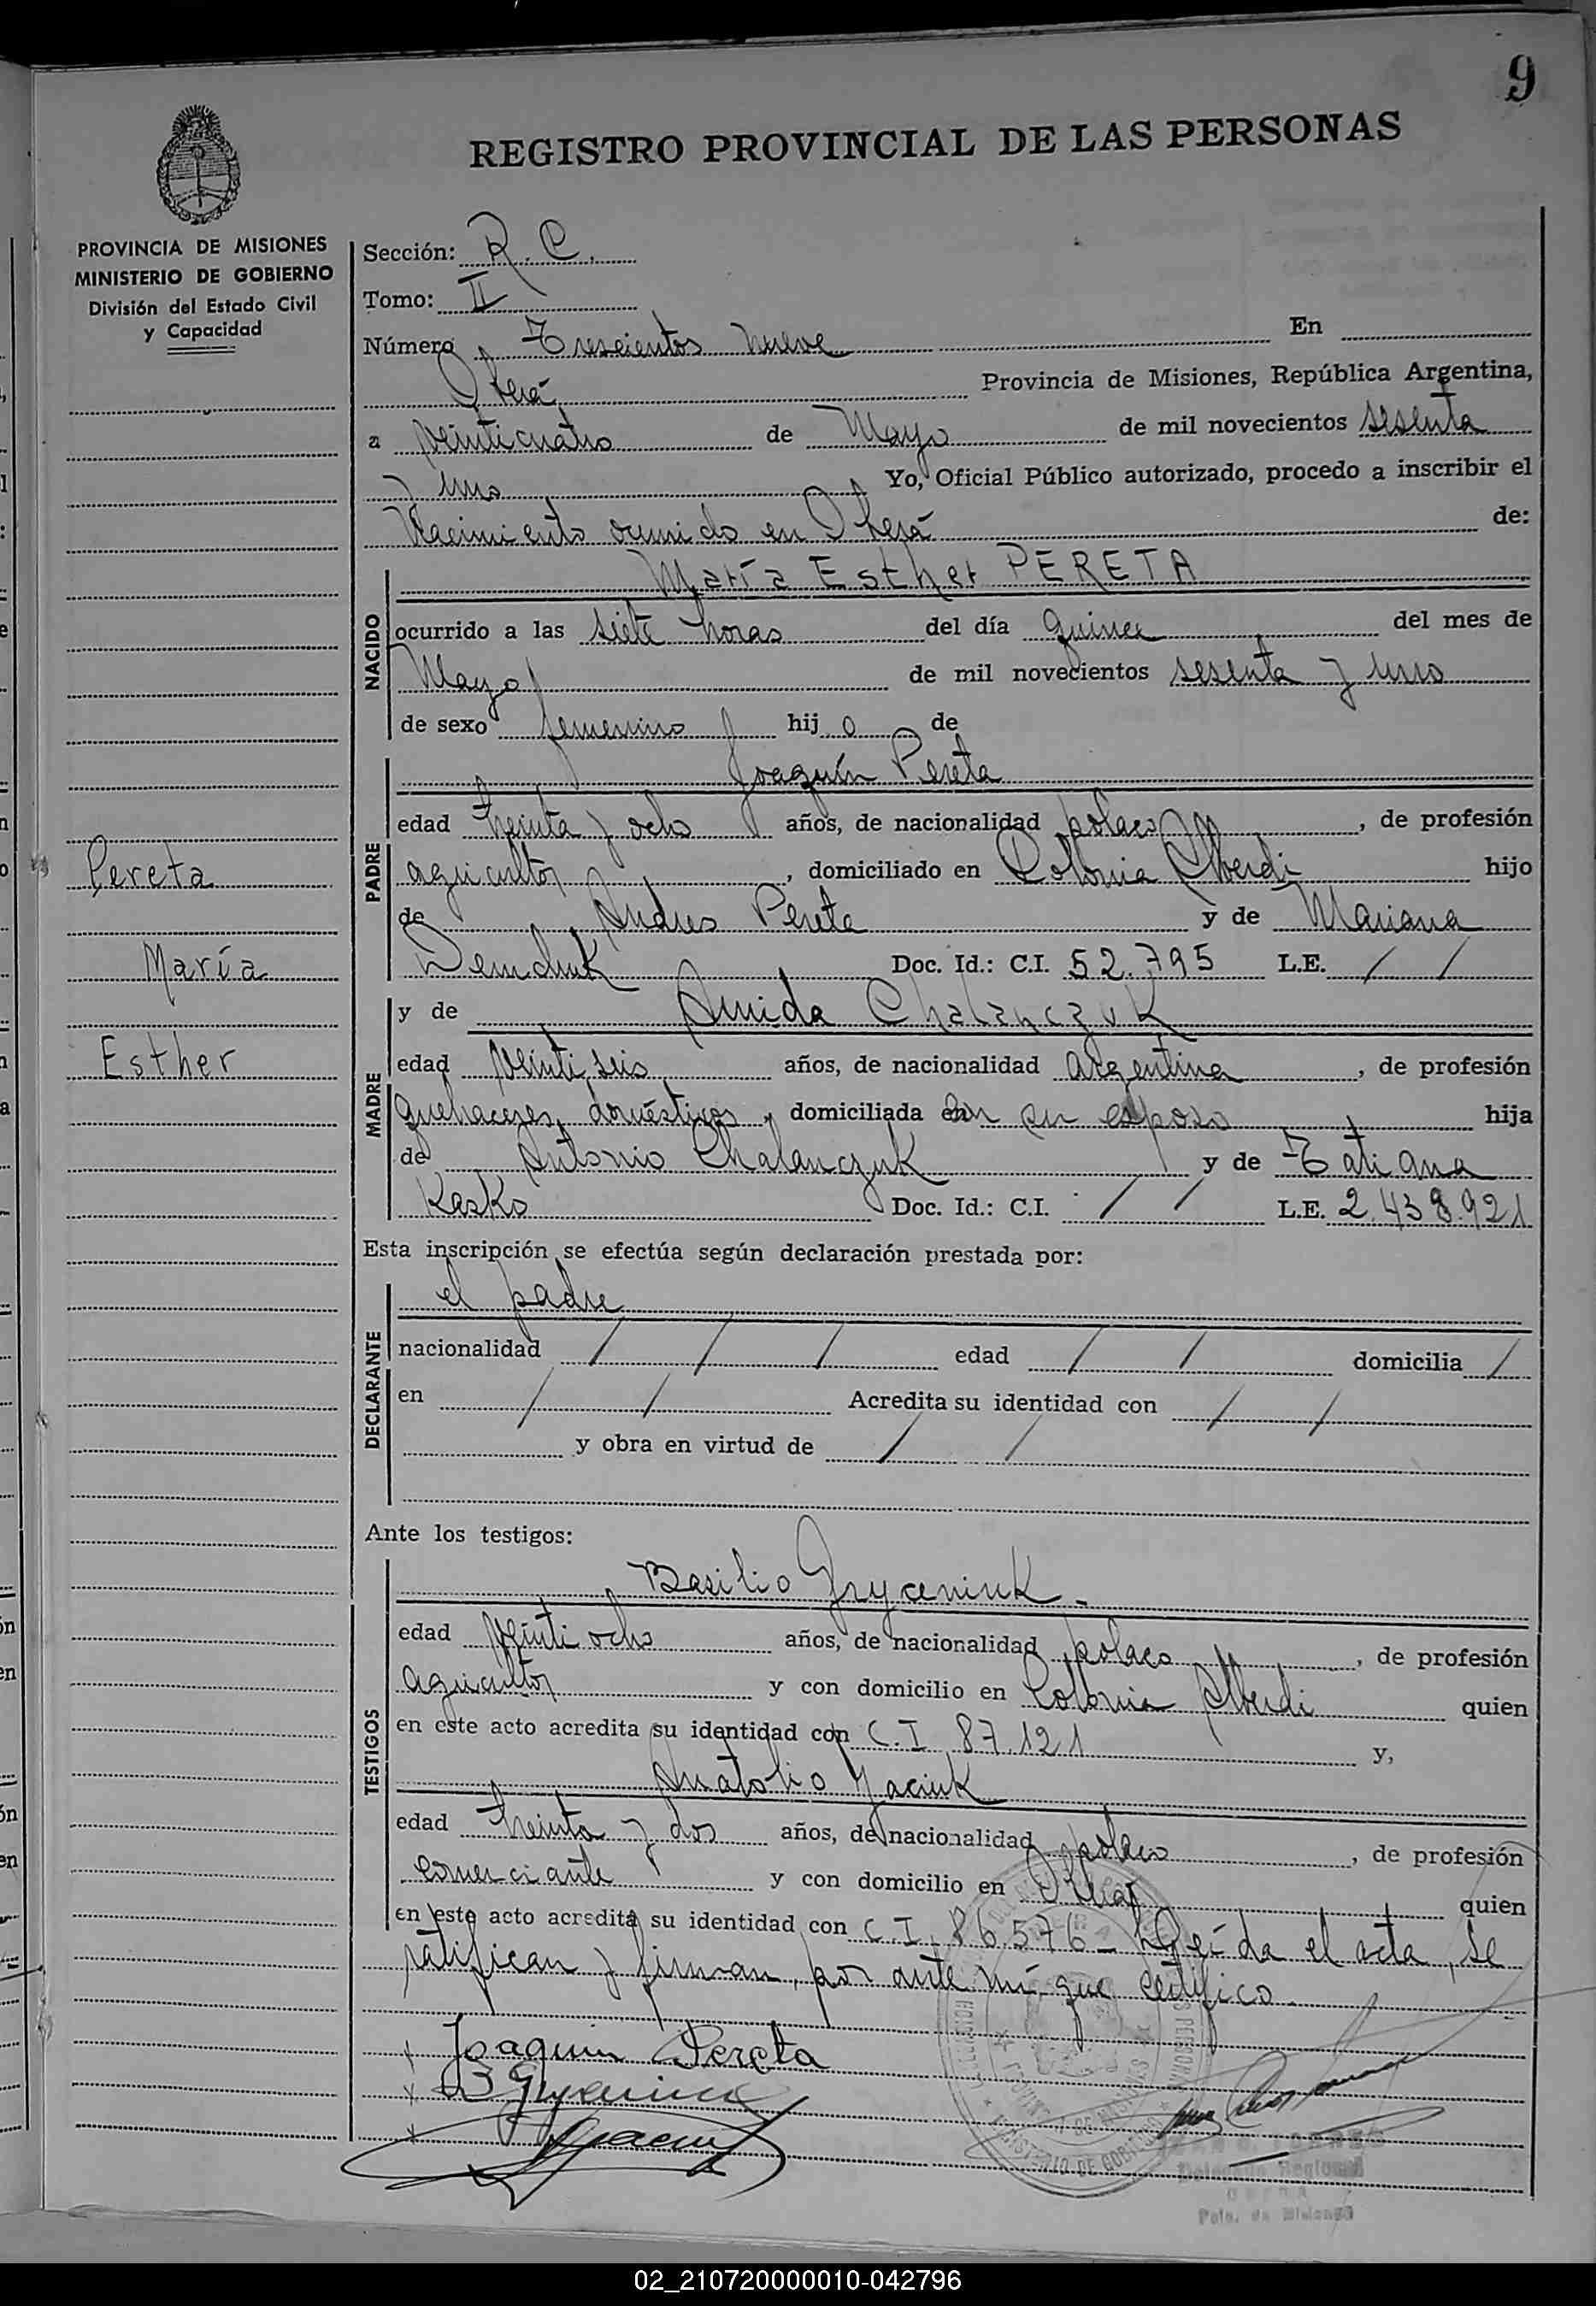 9
REGISTRO PROVINCIAL DE LAS PERSONAS
PROVINCIA DE MISIONES
MINISTERIO DE GOBIERNO
División del Estado Civil
y Capacidad
Sección: R. C.
Tomo: II
Número Trescientos nueve En
Oberá Provincia de Misiones, República Argentina,
a veinticuatro de Mayo de mil novecientos sesenta
y uno Yo, Oficial Público autorizado, procedo a inscribir el
Nacimiento ocurrido en Oberá de:
María Esther PERETA
NACIDO
ocurrido a las siete horas del día quince del mes de
Mayo de mil novecientos sesenta y uno
de sexo femenino hij o de
Joaquín Pereta
PADRE
edad treinta y ocho años, de nacionalidad polaco, de profesión
agricultor, domiciliado en Colonia Alberdi hijo
de Andres Pereta y de Mariana
Demchuk Doc. Id.: C.I. 52.795 L.E. / /
Pereta
María
Esther
y de Amida Chalanczuk
MADRE
edad veintiseis años, de nacionalidad argentina, de profesión
quehaceres domésticos, domiciliada con su esposo hija
de Antonio Chalanczuk y de Tatiana
Kasko Doc. Id.: C.I. / / L.E. 2.438.921
Esta inscripción se efectúa según declaración prestada por:
el padre
DECLARANTE
nacionalidad / / / edad / / domicilia /
en / / Acredita su identidad con / /
y obra en virtud de / /
Ante los testigos:
Basilio Gryceniuk.
TESTIGOS
edad veintiocho años, de nacionalidad polaco, de profesión
agricultor y con domicilio en Colonia Alberdi quien
en este acto acredita su identidad con C.I. 87.121 y,
Anatolio Jaciuk
edad treinta y dos años, de nacionalidad polaco, de profesión
comerciante y con domicilio en Oberá quien
en este acto acredita su identidad con C.I. 86.576 - Leída el acta, se
ratifican y firman, por ante mí que certifico.
Joaquin Pereta
Delegado Regional
Pcia. de Misiones
02_210720000010-042796